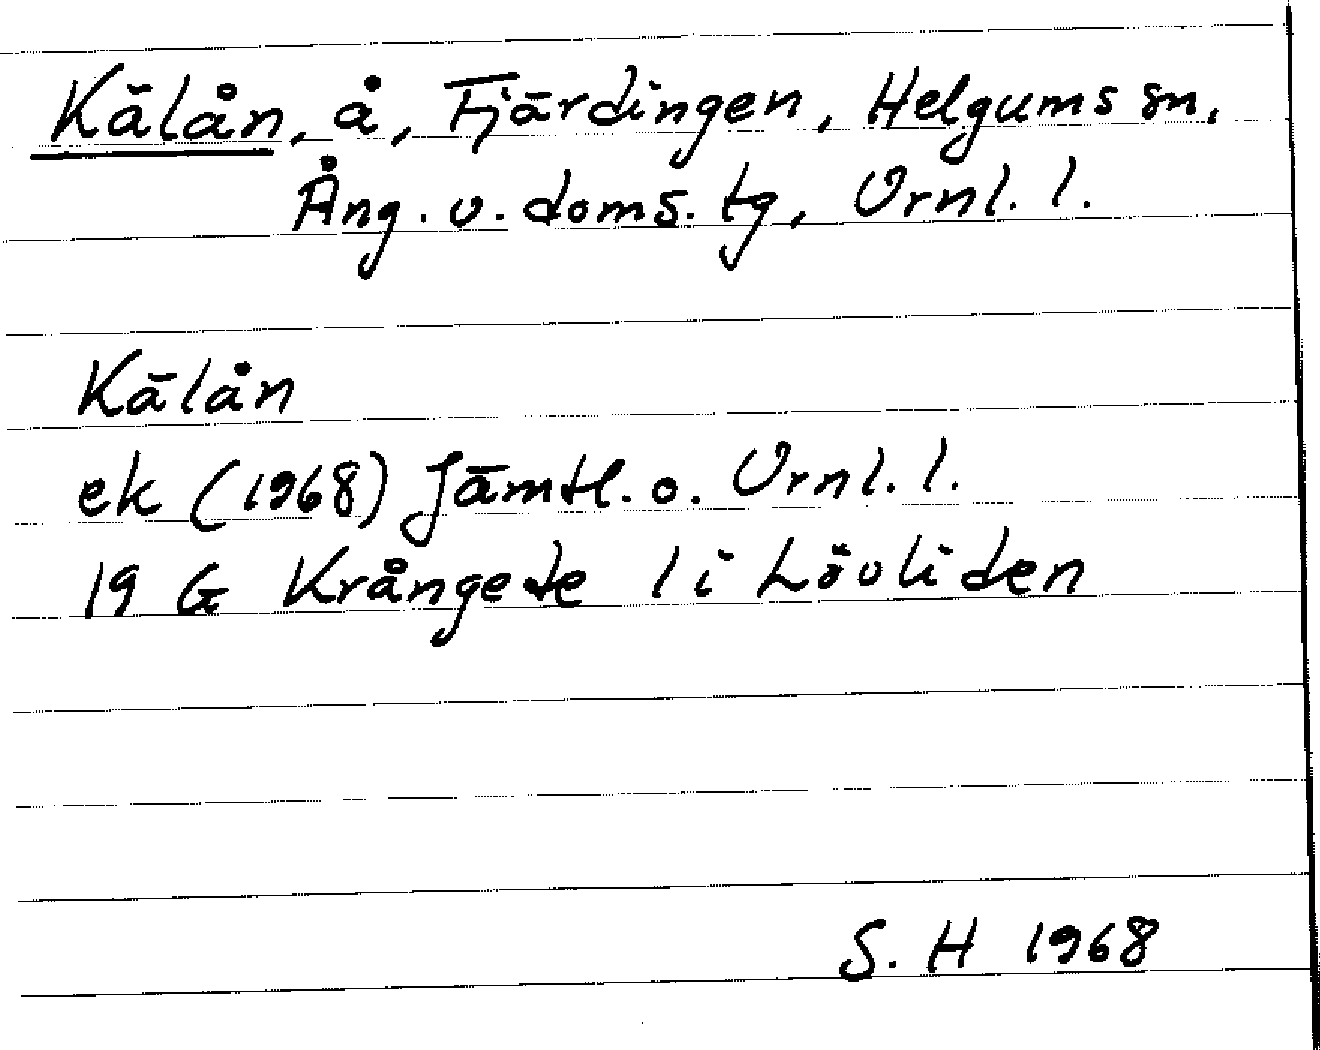 Kälån, å, Fjärdingen, Helgums sn,
Ång. v. doms. tg, Vrnl. l.
Kälån
ek (1968) Jämtl. o. Vrnl. l.
19 G Krångede 1 i Lövliden
S. H 1968